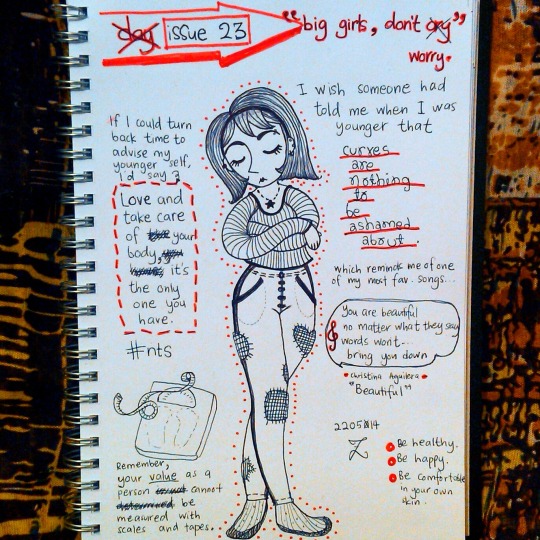 day issue 23
"big girls, don't cry"
worry.
If I could turn
back time to
advise my
younger self,
I'd say :
Love and
take care
of your
body,
it's
the only
one you
have.
#nts
Remember,
your value as a
person cannot
determined be
measured with
scales and tapes.
I wish someone had
told me when I was
younger that
curves
are
nothing
to
be
ashamed
about.
which reminds me of one
of my most fav. songs...
You are beautiful
no matter what they say
words won't...
bring you down
• Christina Aguilera •
"Beautiful"
220514
Be healthy.
Be happy.
Be comfortable
in your own
skin.